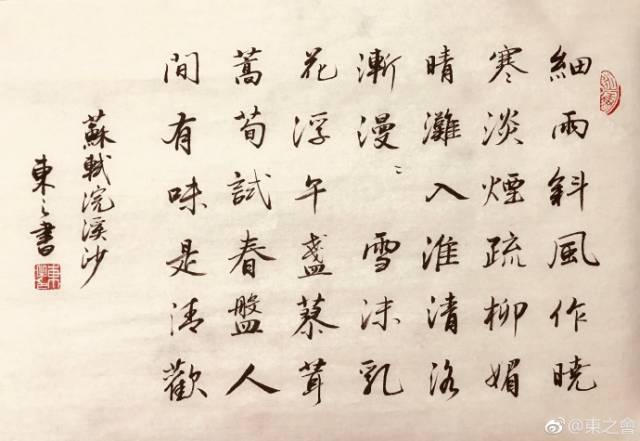 細雨斜風作曉
寒淡煙疏柳媚
晴灘入淮清洛
漸漫〻雪沫乳
花浮午盞蓼茸
蒿筍試春盤人
間有味是清歡
蘇軾浣溪沙
東之書
@東之會